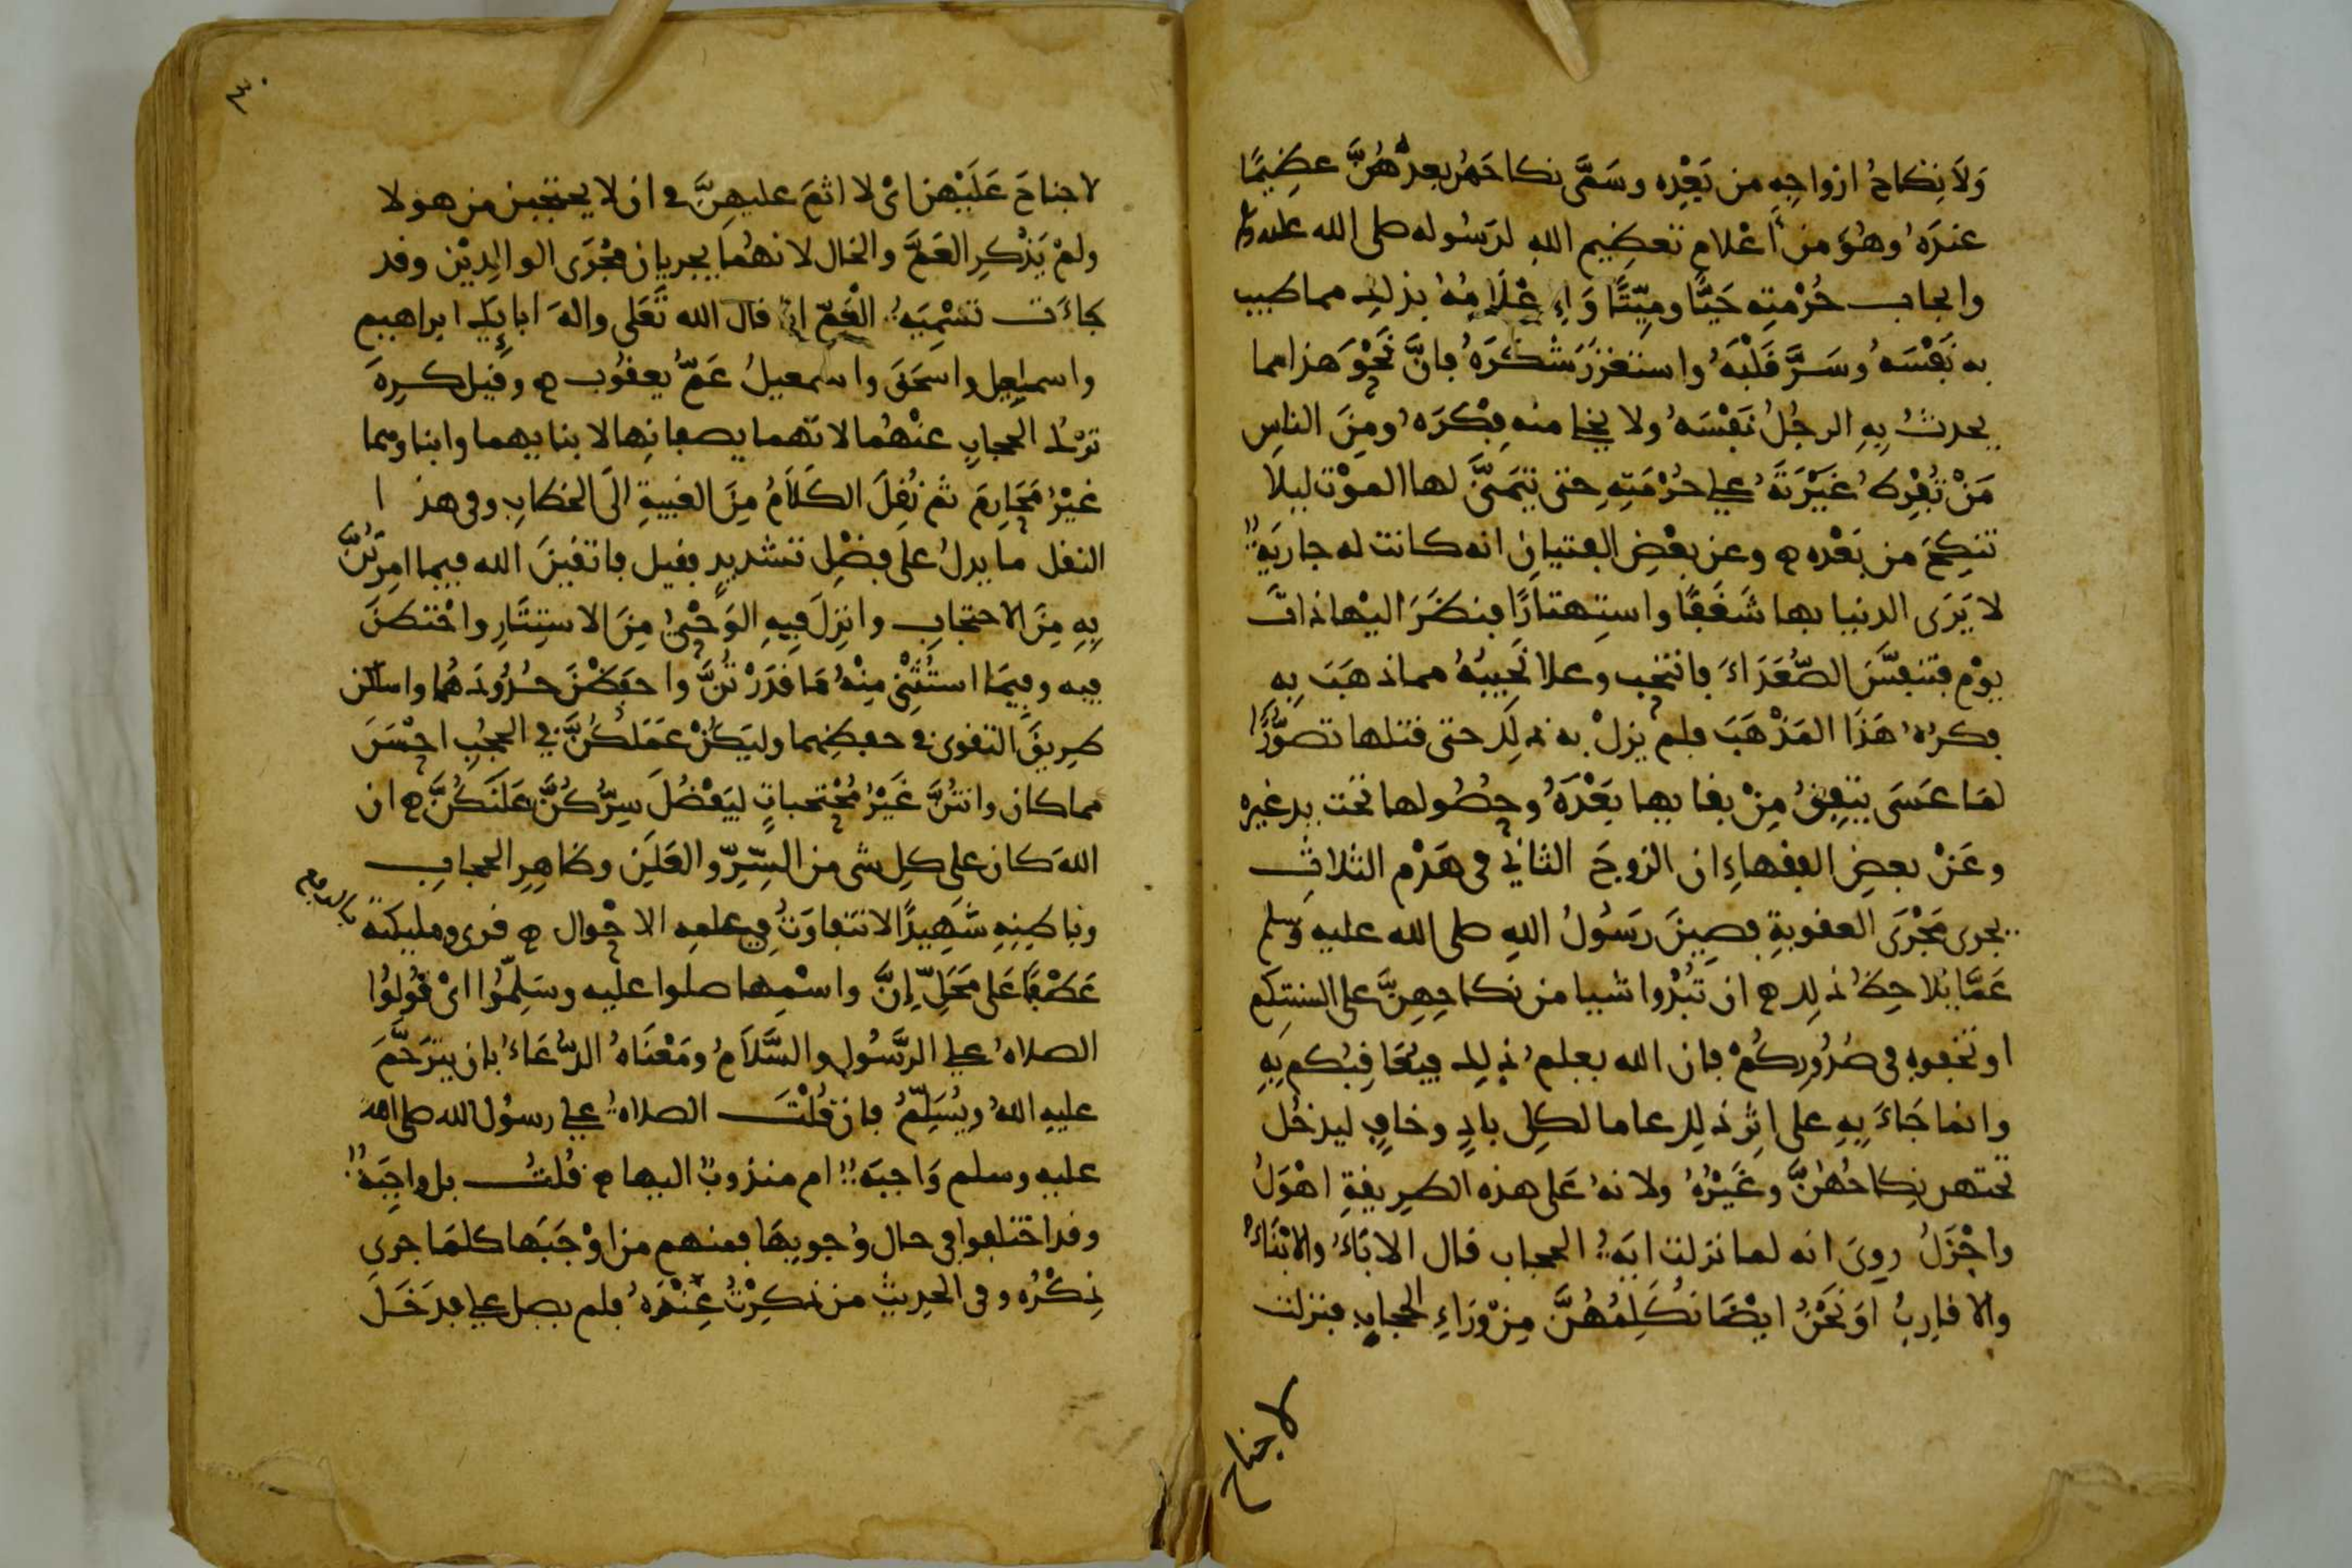 وَلَا نِكَاحُ ازواجِهِ من بَعْدِه وسَمَّى نكاحَهُن بعدهُنَّ عظِيمًا
عندَهُ وهُوَ من أعْلام تعظِيم اللهِ لرَسُوله صلى الله عليه وسلم
وايجاب حُرْمتِه حَيًّا ومَيِّتًا وَإِعْلَامُهُ بذلك مما طيب
به نَفْسَهُ وسَرَّ قَلْبَهُ واستغزَرَ شكْرَهُ فانَّ نَحْوَ هذا مما
يحدثُ بِهِ الرجُلُ نَفْسَهُ ولا يخلا منه فِكْرَهُ ومِنَ الناسِ
مَنْ تُفْرِط غَيْرَتَهُ على حُرْمَتِهِ حتى يتمَنَّى لها المَوْت ليلا
تنكِحَ من بَعْدِه ه وعن بعْضِ الفتيانِ انه كانت له جاريَةٌ
لا يَرَى الدنيا بها شَغَفًا واستِهتارًا فنظَرَ اليْها ذات
يوْمٍ فتنفَّسَ الصُّعَدَاءَ فانتحَب وعلا نَحِيبُهُ مما ذهَبَ بِهِ
فكرُهُ هَذَا المَذْهَبَ فلم يزلْ به ذلِكَ حتى قتلها تصوُّرًا
لمَا عَسَى يتفِقُ مِنْ بقايها بَعْدَهُ وحصُولها تحت يد غيره
وعَنْ بعضِ الفقهاءِ ان الزوجَ الثاني في هَدْم الثلاثِ
يجرى مَجْرَى العقوبةِ فصِينَ رَسُولُ اللهِ صلى الله عليه وسلم
عَمَّا يُلاحِظُ ذلك ه ان تُبْدُوا شيا من نكاحِهِنَّ على السنتِكُم
او تخفوه في صُدُورِكُمْ فان الله يعلمُ ذلك فيُعَاقِبُكم بِهِ
وانما جَاءَ بِهِ على اثرِ ذلِك عاما لكِل بادٍ وخافٍ ليدخُل
تحتهن نِكاحُهُنَّ وغَيْرُهُ ولانهُ عَلى هذه الطريقةِ اهْوَلُ
واجْزَلُ رويَ انه لما نزلت ايَةُ الحجاب قال الابَاءُ والابْنَاءُ
والاقاربُ اوَ نَحْنُ ايضًا نُكَلِمُهُنَّ مِنْ وَرَاءِ الحجابِ فنزلت
لا جناح
٣٠
لا جناحَ عَلَيْهن ائ لا اثمَ عليهِنَّ في ان لا يحتجبن من هولا
ولمْ يَذْكرِ العَمَّ والخال لانهُما يجريان مَجْرَى الوالِدِيْن وقد
جاءَت تسْمِيَةُ العَمِّ ابا قال الله تَعَلى والهَ ابايِكَ ابراهيم
واسمٰعِيل واسحَقَ واسمعيلُ عَمُّ يعقُوب ه وقيل كرِهَ
ترْك الحجابِ عنْهُما لانّهما يصفانِها لابنايهما وابناوهما
غيْرُ مَحَارِمَ ثم نُقِلَ الكَلَامُ مِنَ الغيبةِ الَى الخطابِ وفي هذا
النقل ما يدلُ على فضْلِ تشديدٍ فقيل واتقينَ الله فيما امِرْتُنَّ
بِهِ مِنَ الاحتجابِ وانزِلَ فِيهِ الوَحْيُ مِنَ الاستِتَارِ واحْتطنَ
فيه وفِيمَا استُثْنِيَ مِنْهُ مَا قدَرْتُنَّ واحفَظْنَ حدُودَهُما واسلكن
طريقَ التقوى في حفظِهما وليَكُنْ عَمَلكُنَّ في الحجُبِ احْسَنَ
مما كان وانتُنَّ غَيْرُ مُحْتجباتٍ ليَفْضُلَ سِرُّكُنَّ عَلَنَكُنَّ ه ان
اللهَ كان على كلِ شى من السِّرِّ والعَلَنِ وظاهِرِ الحجابِ
وباطِنِهِ شَهِيدًا لا تتفاوَتُ في علمِهِ الاحْوال ه قرى وملئكته
بالرفع
عَطْفًا عَلى مَحَلِّ إِنَّ واسْمِها صلوا عليه وسَلِّمُوا ائ قُولُوا
الصلاهُ على الرَّسُولِ والسَّلَامُ ومَعْنَاهُ الدُّعَاءُ بان يترَحَّمَ
عليهِ اللهُ ويُسَلِّمُ فان قُلْتَ الصلاةُ على رسُول الله صلى الله
عليه وسلم وَاجبَةٌ ام مندُوبٌ اليها ه قُلتُ بل واجِبَةٌ
وقد اختلفوا في حال وُجوبِهَا فمنهم من اوْجَبَها كلمَا جرى
ذِكْرُه وفى الحديثِ من ذكِرْتُ عِنْدَهُ فلم يصل على فدَخَلَ